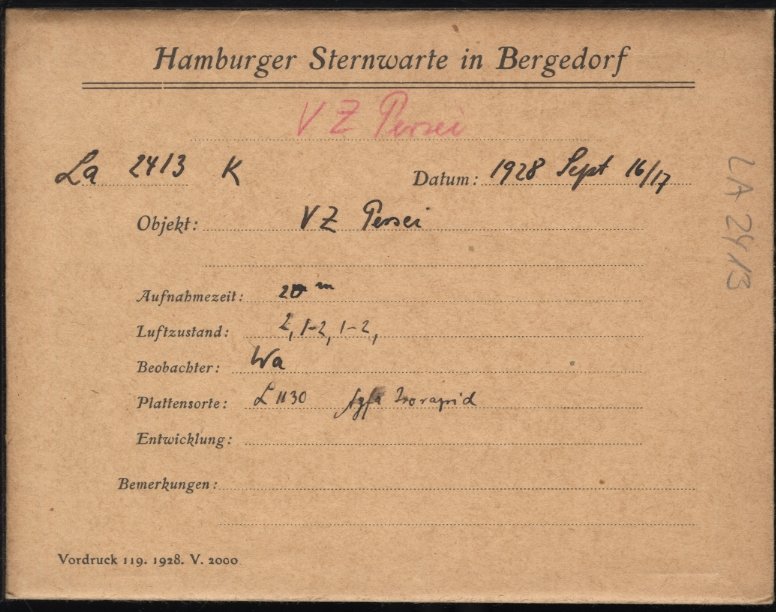 Hamburger Sternwarte in Bergedorf
VZ Persei
La 2413 K Datum: 1928 Sept 16/17
Objekt: VZ Persei
Aufnahmezeit: 20 m
Luftzustand: 2, 1-2, 1-2,
Beobachter: Wa
Plattensorte: L 1130 Agfa Isorapid
Entwicklung:
Bemerkungen:
Vordruck 119. 1928. V. 2000
LA 2413